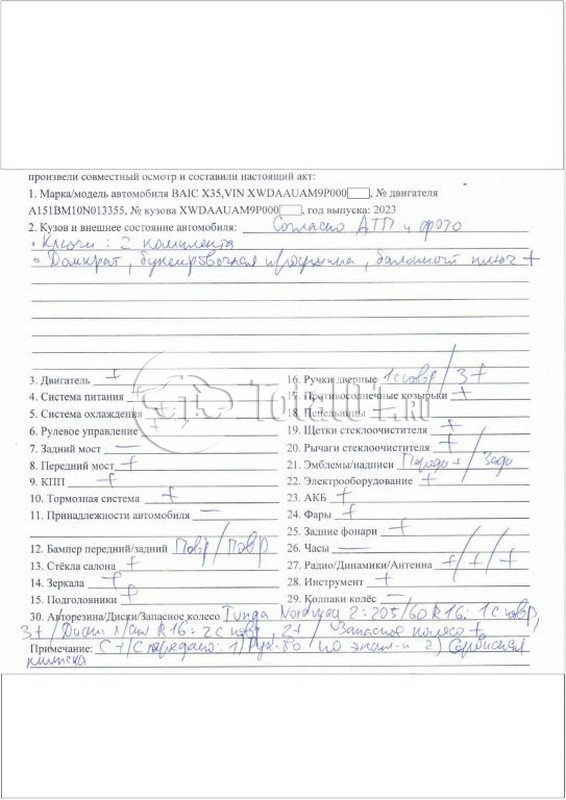 произвели совместный осмотр и составили настоящий акт:
1. Марка/модель автомобиля BAIC X35,VIN XWDAAUAM9P000 , № двигателя
A151BM10N013355, № кузова XWDAAUAM9P000 , год выпуска: 2023
2. Кузов и внешнее состояние автомобиля: Согласно ДТП и фото
• Ключи : 2 комплекта
• Домкрат, буксировочная проушина, балонный ключ +
3. Двигатель +
4. Система питания +
5. Система охлаждения +
6. Рулевое управление +
7. Задний мост —
8. Передний мост +
9. КПП +
10. Тормозная система +
11. Принадлежности автомобиля —
12. Бампер передний/задний повр/повр
13. Стёкла салона +
14. Зеркала +
15. Подголовники +
16. Ручки дверные 1 с повр / 3 +
17. Противосолнечные козырьки +
18. Пепельницы —
19. Щетки стеклоочистителя +
20. Рычаги стеклоочистителя +
21. Эмблемы/надписи Перед + / Зад
22. Электрооборудование +
23. АКБ +
24. Фары +
25. Задние фонари +
26. Часы —
27. Радио/Динамики/Антенна + / + / +
28. Инструмент +
29. Колпаки колёс —
30. Авторезина/Диски/Запасное колесо Tunga Nordway 2 : 205/60 R16: 1 с повр,
3 + / Диски R16: 2 с повр, 2 + / Запасное колесо +,
Примечание: С ТС передано: 1) Рук-во по экспл-и 2) Сервисная
книжка
TOTAL01.RU